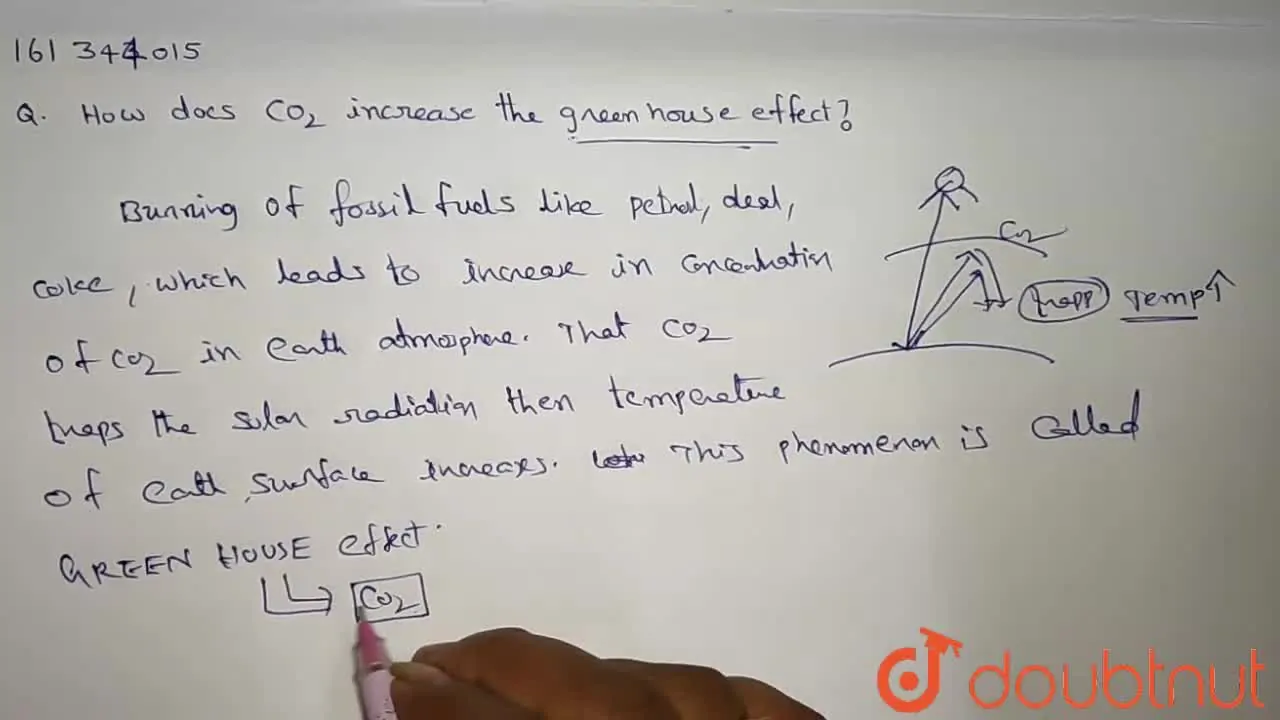 161 344015
Q. How does CO2 increase the green house effect?
Burning of fossil fuels like petrol, desel,
coke, which leads to increase in concentration
of CO2 in earth atmosphere. That CO2
traps the solar radiation then temperature
of earth surface increases. This phenomenon is called
GREEN HOUSE effect.
CO2
CO2
trapp Temp↑
doubtnut